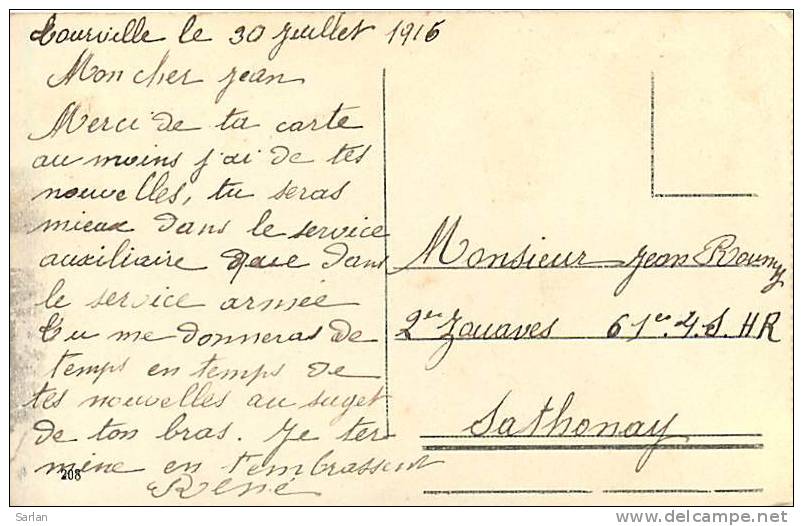 Tourville le 30 Juillet 1916
Mon cher Jean
Merci de ta carte
au moins j'ai de tes
nouvelles, tu seras
mieux dans le service
auxiliaire que dans
le service armée
Tu me donneras de
temps en temps de
tes nouvelles au suget
de ton bras. Je ter
mine en t'embrassent
René
208
Monsieur Jean
2e Zouaves 61e. 4. S. HR
Sathonay
Sarlan
delcampe.net